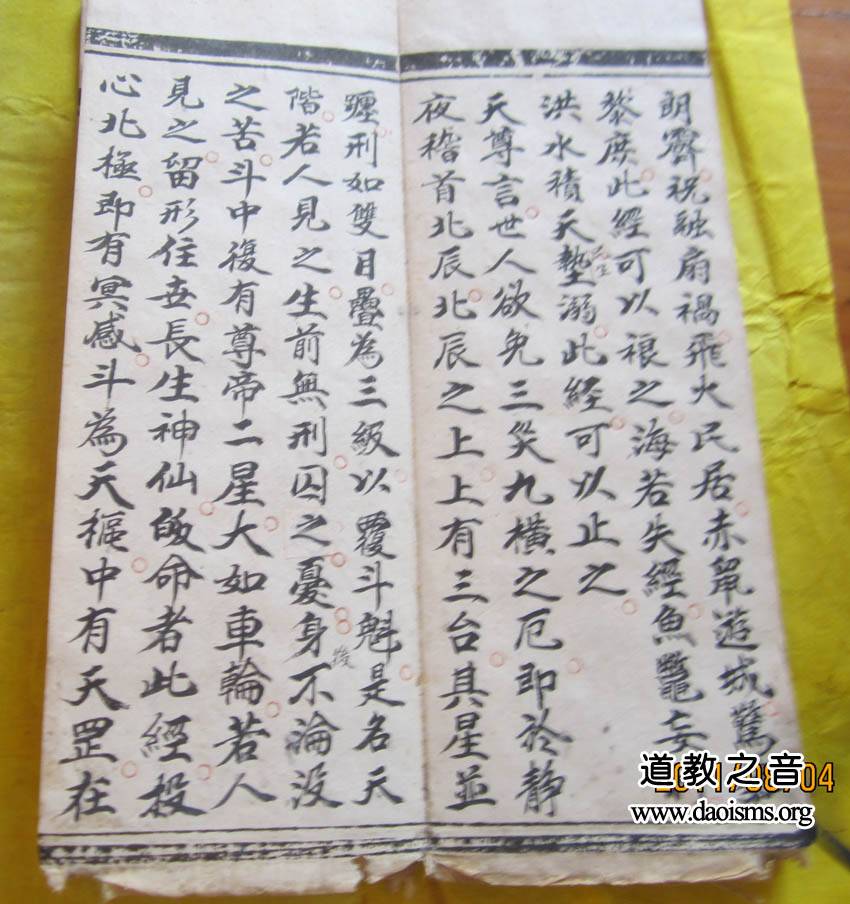 朗霽祝融扇禍飛火民居赤鼠遊城驚
黎庶此經可以禳之海若失經魚鼈妄
洪水積天墊溺民生此經可以止之
天尊言世人欲免三災九橫之厄即於靜
夜稽首北辰北辰之上上有三台其星並
躔刑如雙目疊為三級以覆斗魁是名天
階若人見之生前無刑囚之憂身後不淪沒
之苦斗中復有尊帝二星大如車輪若人
見之留形住世長生神仙皈命者此經投
心北極即有冥感斗為天樞中有天罡在
道教之音
www.daoisms.org